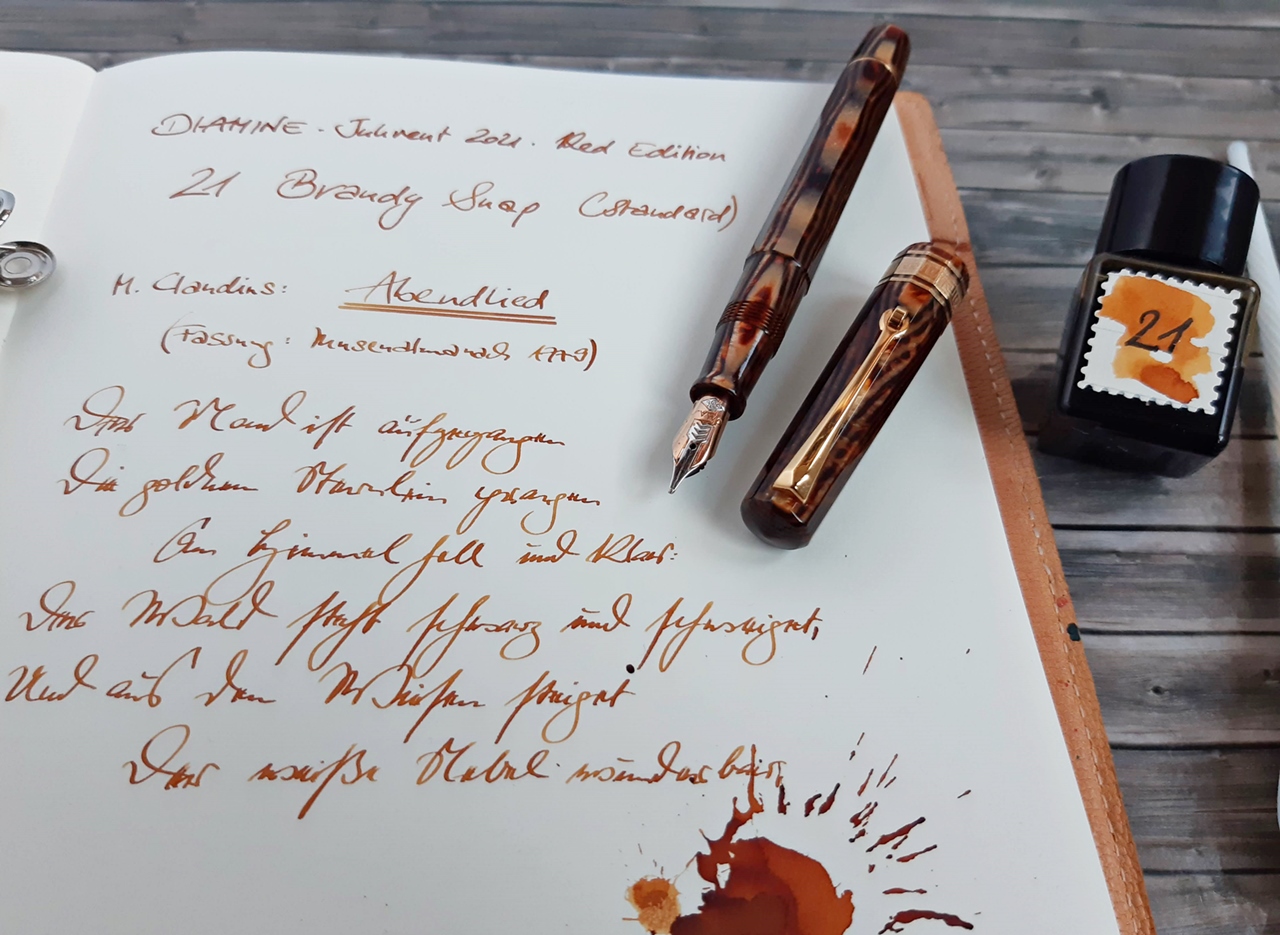 DIAMINE - Inkvent 2021. Red Edition
21 Brandy Snap (Standard)
M. Claudius: Abendlied
(Fassung: Musenalmanach 1779)
Der Mond ist aufgegangen
Die goldnen Sternlein prangen
Am Himmel hell und klar:
Der Wald steht schwarz und schweiget,
Und aus den Wiesen steiget
Der weiße Nebel wunderbar;
21